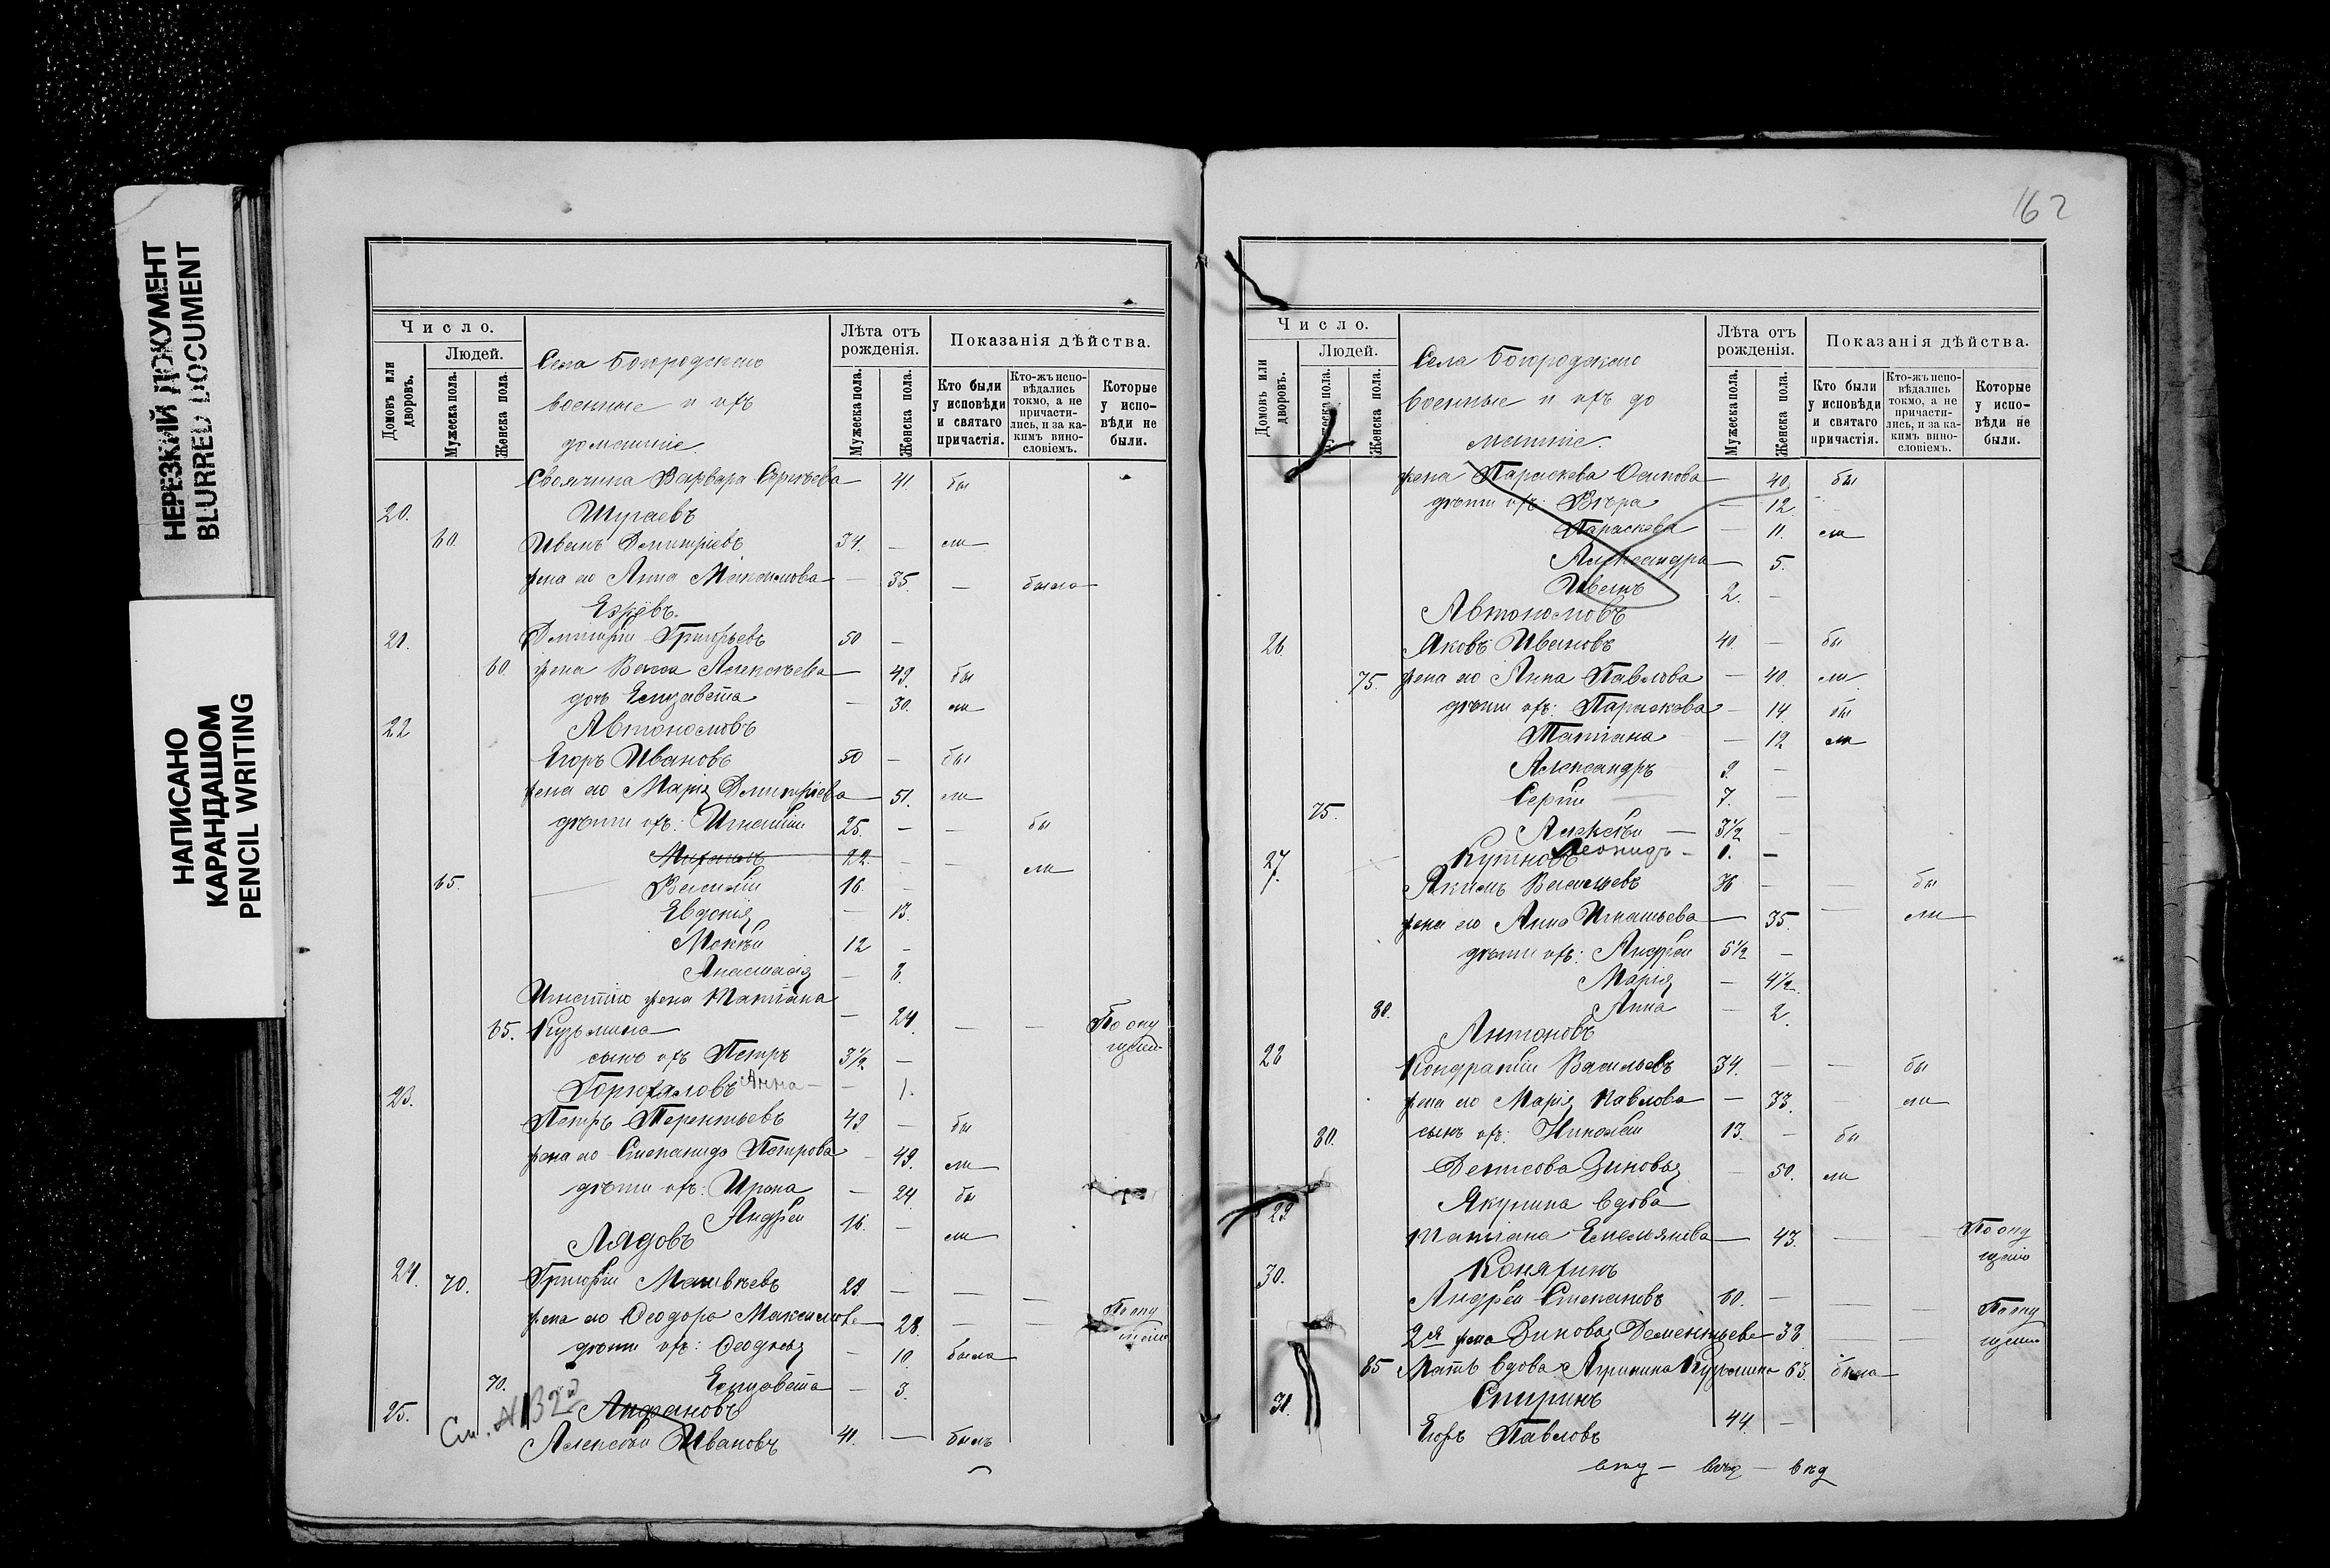 НЕРЕЗКИЙ ДОКУМЕНТ
BLURRED DOCUMENT
НАПИСАНО
КАРАНДАШОМ
PENCIL WRITING
Число.
Людей.
Домовъ или дворовъ.
Мужеска пола.
Женска пола.
Села Богородскаго
военные и ихъ
домашніе.
Лѣта отъ рожденія.
Мужеска пола.
Женска пола.
Показанія дѣйства.
Кто были у исповѣди и святаго причастія.
Кто-жъ исповѣдались токмо, а не причастились, и за какимъ винословіемъ.
Которые у исповѣди не были.
Варвара Сергѣева 41 бы
20. Шугаевъ
60. Иванъ Димитріевъ 34. — ли
жена его Анна Максимова — 35. — была
21. Димитрій Григорьевъ 50 —
60. жена Васса Алексѣева — 49. бы
дочь Елизавета — 30. ли
22 Автономовъ
Егоръ Ивановъ 50 — бы
жена его Марія Димитріева — 51. ли
дѣти ихъ: Игнатій 25. — — бы
Михаилъ 22. — — ли
65. Василій 16. —
Евдокія — 13.
Мокей 12 —
Анастасія — 8.
Игнатія жена Татіана — 24. — — По опу
65. Кузьмина щенію
сынъ ихъ Петръ 3½ —
23. Анна — 1.
Петръ Терентьевъ 49 — бы
жена его Степанида Петрова — 49. ли
дѣти ихъ: Ирина — 24. бы
Андрей 16. — ли
Лядовъ
24. 70. Григорій Матвѣевъ 29 — — —
жена его Ѳеодора Максимова — 28. — — По опу
щенію
дѣти ихъ: — 10. была
70. Елизавета — 3.
25. См. №32й
Алексѣй Ивановъ 41. — былъ
162
Число.
Людей.
Домовъ или дворовъ.
Мужеска пола.
Женска пола.
Села Богородскаго
военные и ихъ до
машніе.
Лѣта отъ рожденія.
Мужеска пола.
Женска пола.
Показанія дѣйства.
Кто были у исповѣди и святаго причастія.
Кто-жъ исповѣдались токмо, а не причастились, и за какимъ винословіемъ.
Которые у исповѣди не были.
жена Параскева Осипова — 40. бы
дѣти ихъ: Вѣра — 12.
Параскева — 11. ли
Александра — 5.
Иванъ 2. —
Автономовъ
26. Яковъ Ивановъ 40. — бы
75. жена его Анна Павлова — 40. ли
дѣти ихъ: Параскева — 14. бы
Татіана — 12 ли
Александръ 9. —
Сергій 7. —
75. Алексѣй — 3½ —
Леонидъ — 1. —
27. Акимъ Васильевъ 36 — — бы
жена его Анна Игнатьева — 35. — ли
дѣти ихъ: Андрей 5½ —
Марія — 4½.
80. Анна — 2.
Антоновъ
28 Кондратій Васильевъ 34. — — бы
жена его Марія Павлова — 33. — ли
80. сынъ ихъ: Николай 13. — бы
Денисова Зиновья — 50. ли
29 Якунина вдова
Татіана Емельянова — 43. — — По опу
щенію
30. Конятинъ
Андрей Степановъ 60. — — — По опу
2я жена Зиновья Дементьева 38 — щенію
85 Мать вдова Агрипина Кузьмина 63. была
31. Спиринъ
Егоръ Павловъ 44. —